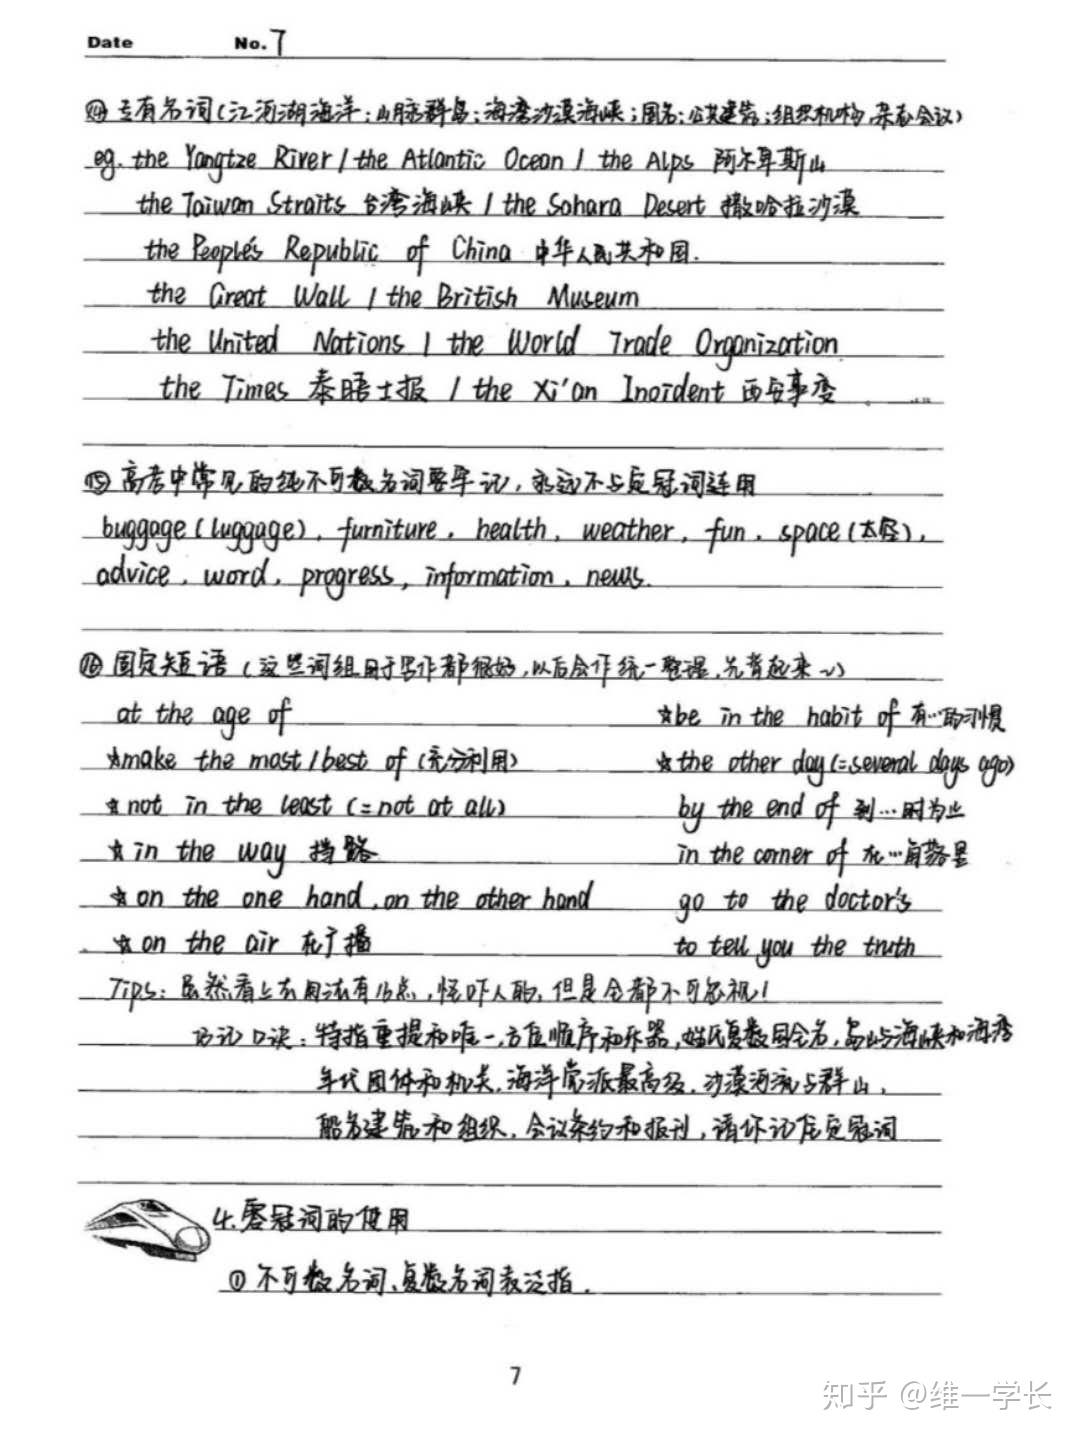 Date No. 7
⑭ 专有名词(江河湖海洋;山脉群岛;海湾沙漠海峡;国名;公共建筑;组织机构,杂志会议)
eg. the Yangtze River / the Atlantic Ocean / the Alps 阿尔卑斯山
the Taiwan Straits 台湾海峡 / the Sahara Desert 撒哈拉沙漠
the People's Republic of China 中华人民共和国.
the Great Wall / the British Museum
the United Nations / the World Trade Organization
the Times 泰晤士报 / the Xi'an Incident 西安事变
⑮ 高考中常见的纯不可数名词要牢记,永远不与定冠词连用
buggage (luggage), furniture, health, weather, fun, space (太空),
advice, word, progress, information, news.
⑯ 固定短语 (这些词组用于写作都很好,以后会作统一整理,先背起来~)
at the age of ☆be in the habit of 有…的习惯
☆make the most/best of (充分利用) ☆the other day (=several days ago)
☆not in the least (=not at all) by the end of 到…时为止
☆in the way 挡路 in the corner of 在…角落里
☆on the one hand, on the other hand go to the doctor's
☆on the air 在广播 to tell you the truth
Tips: 虽然看上去用法有16点,怪吓人的,但是全都不可忽视!
巧记口诀:特指重提和唯一,方位顺序和乐器,姓氏复数国全名,岛山与海峡和海湾
年代团体和机关,海洋党派最高级,沙漠河流与群山,
船名建筑和组织,会议条约和报刊,请你记住定冠词
4.零冠词的使用
① 不可数名词、复数名词表泛指.
7
知乎 @维一学长